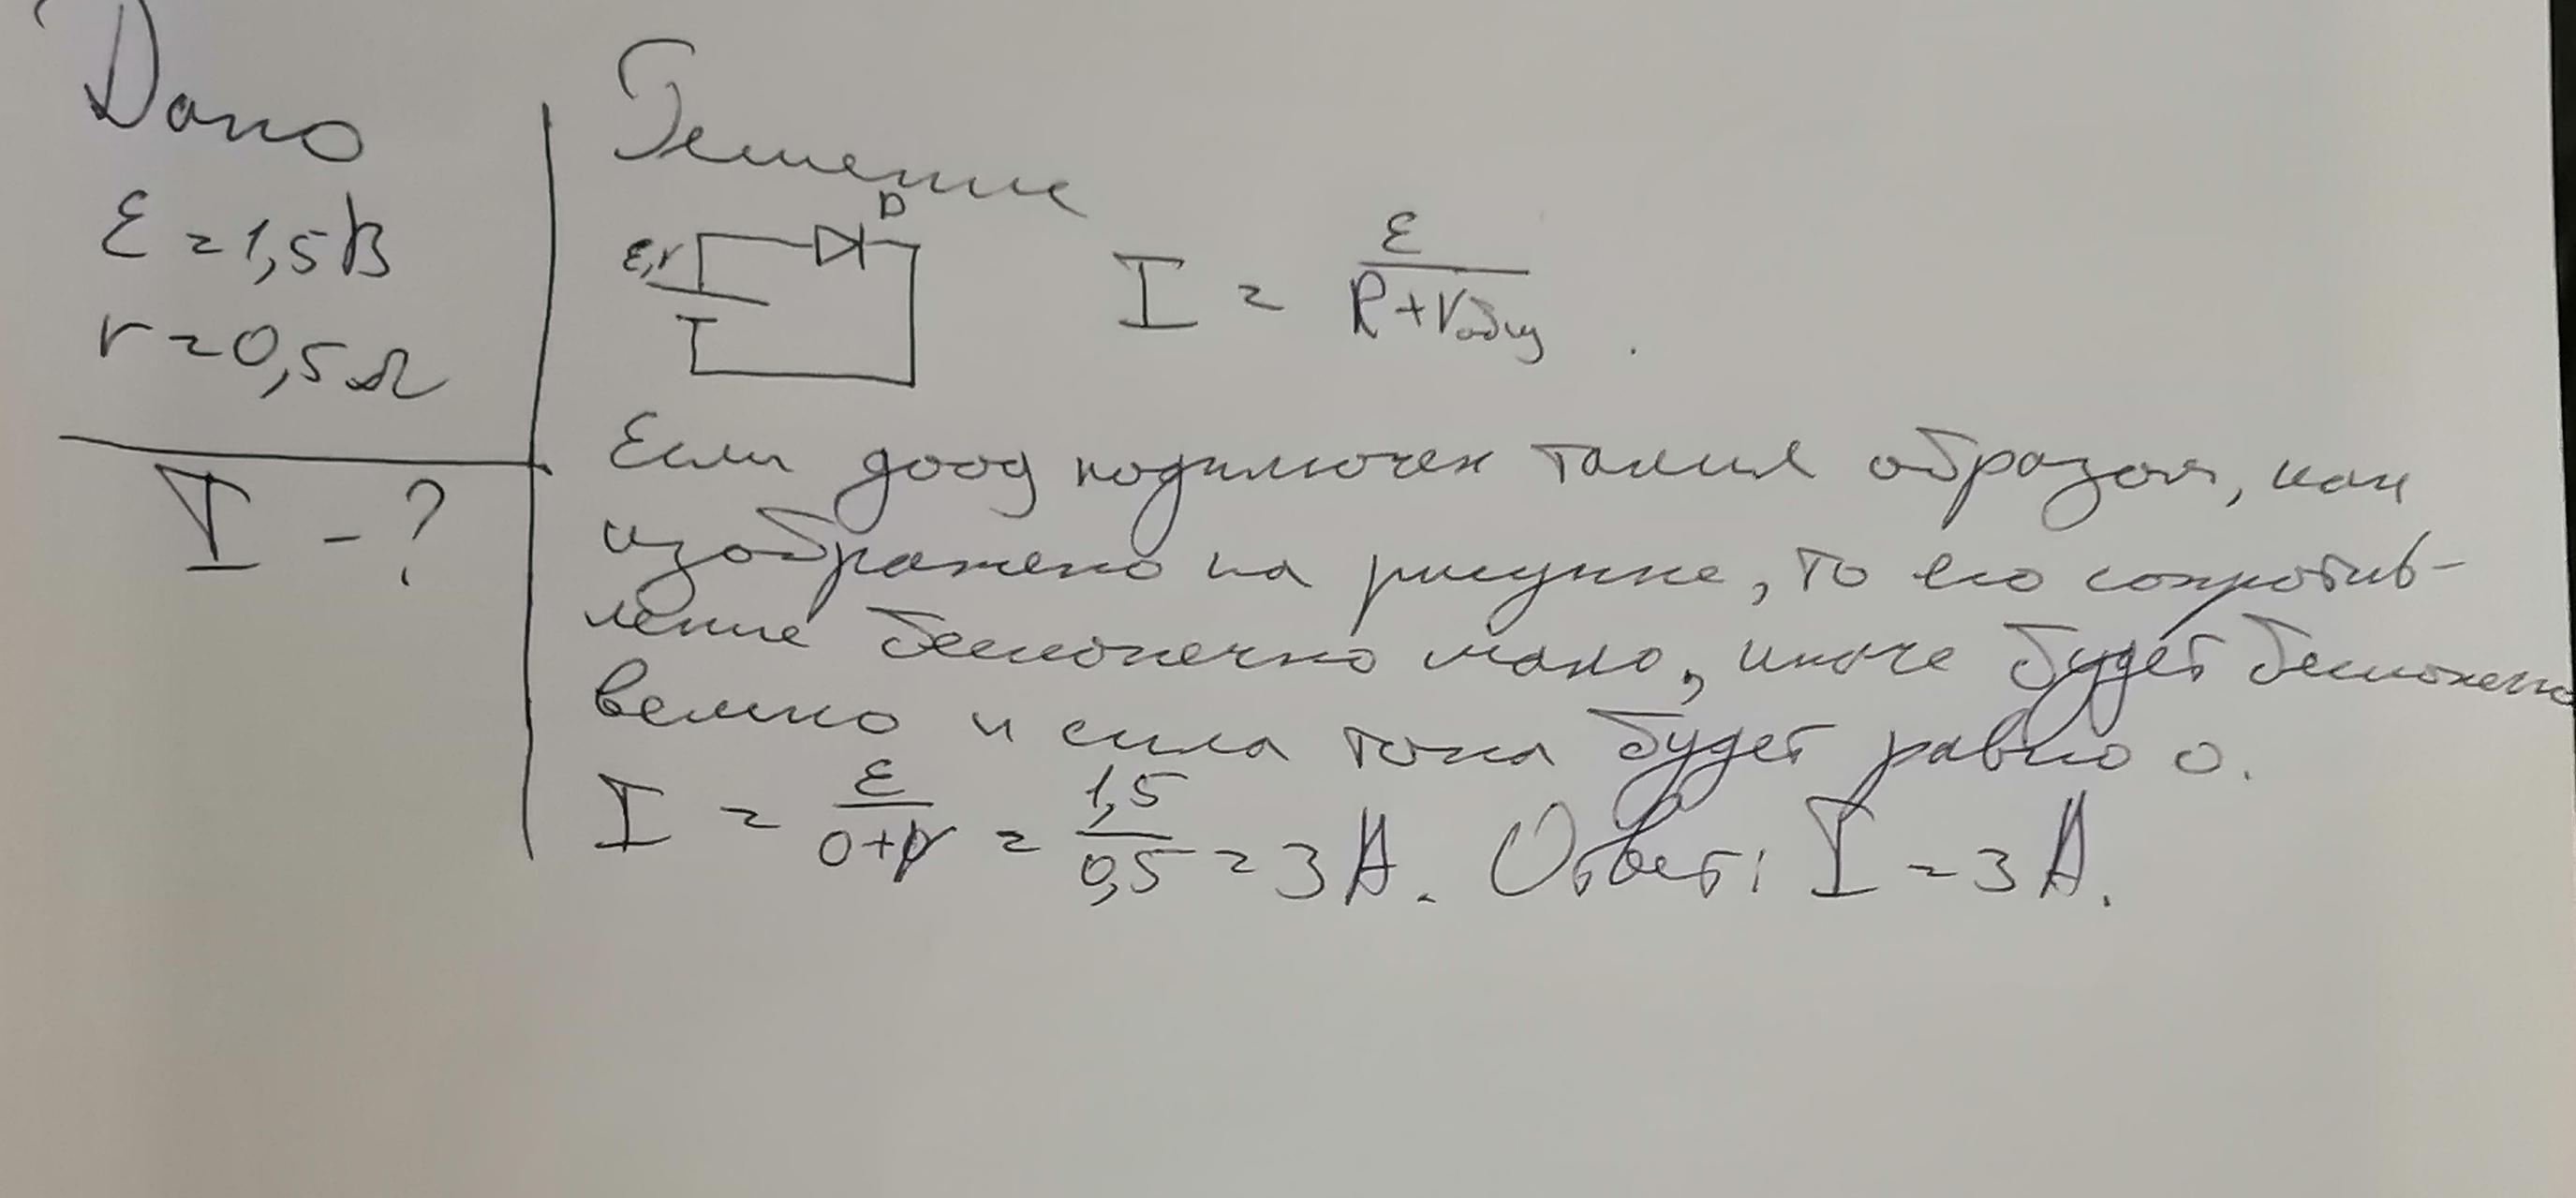 Дано
ε = 1,5 В
r = 0,5 Ω
I - ?
Решение
D
ε, r
I = ε / (R + rобщ) .
Если диод подключен таким образом, как
изображено на рисунке, то его сопротив-
ление бесконечно мало, иначе будет бесконечно
велико и сила тока будет равно 0.
I = ε / (0 + r) = 1,5 / 0,5 = 3 А. Ответ: I = 3 А.